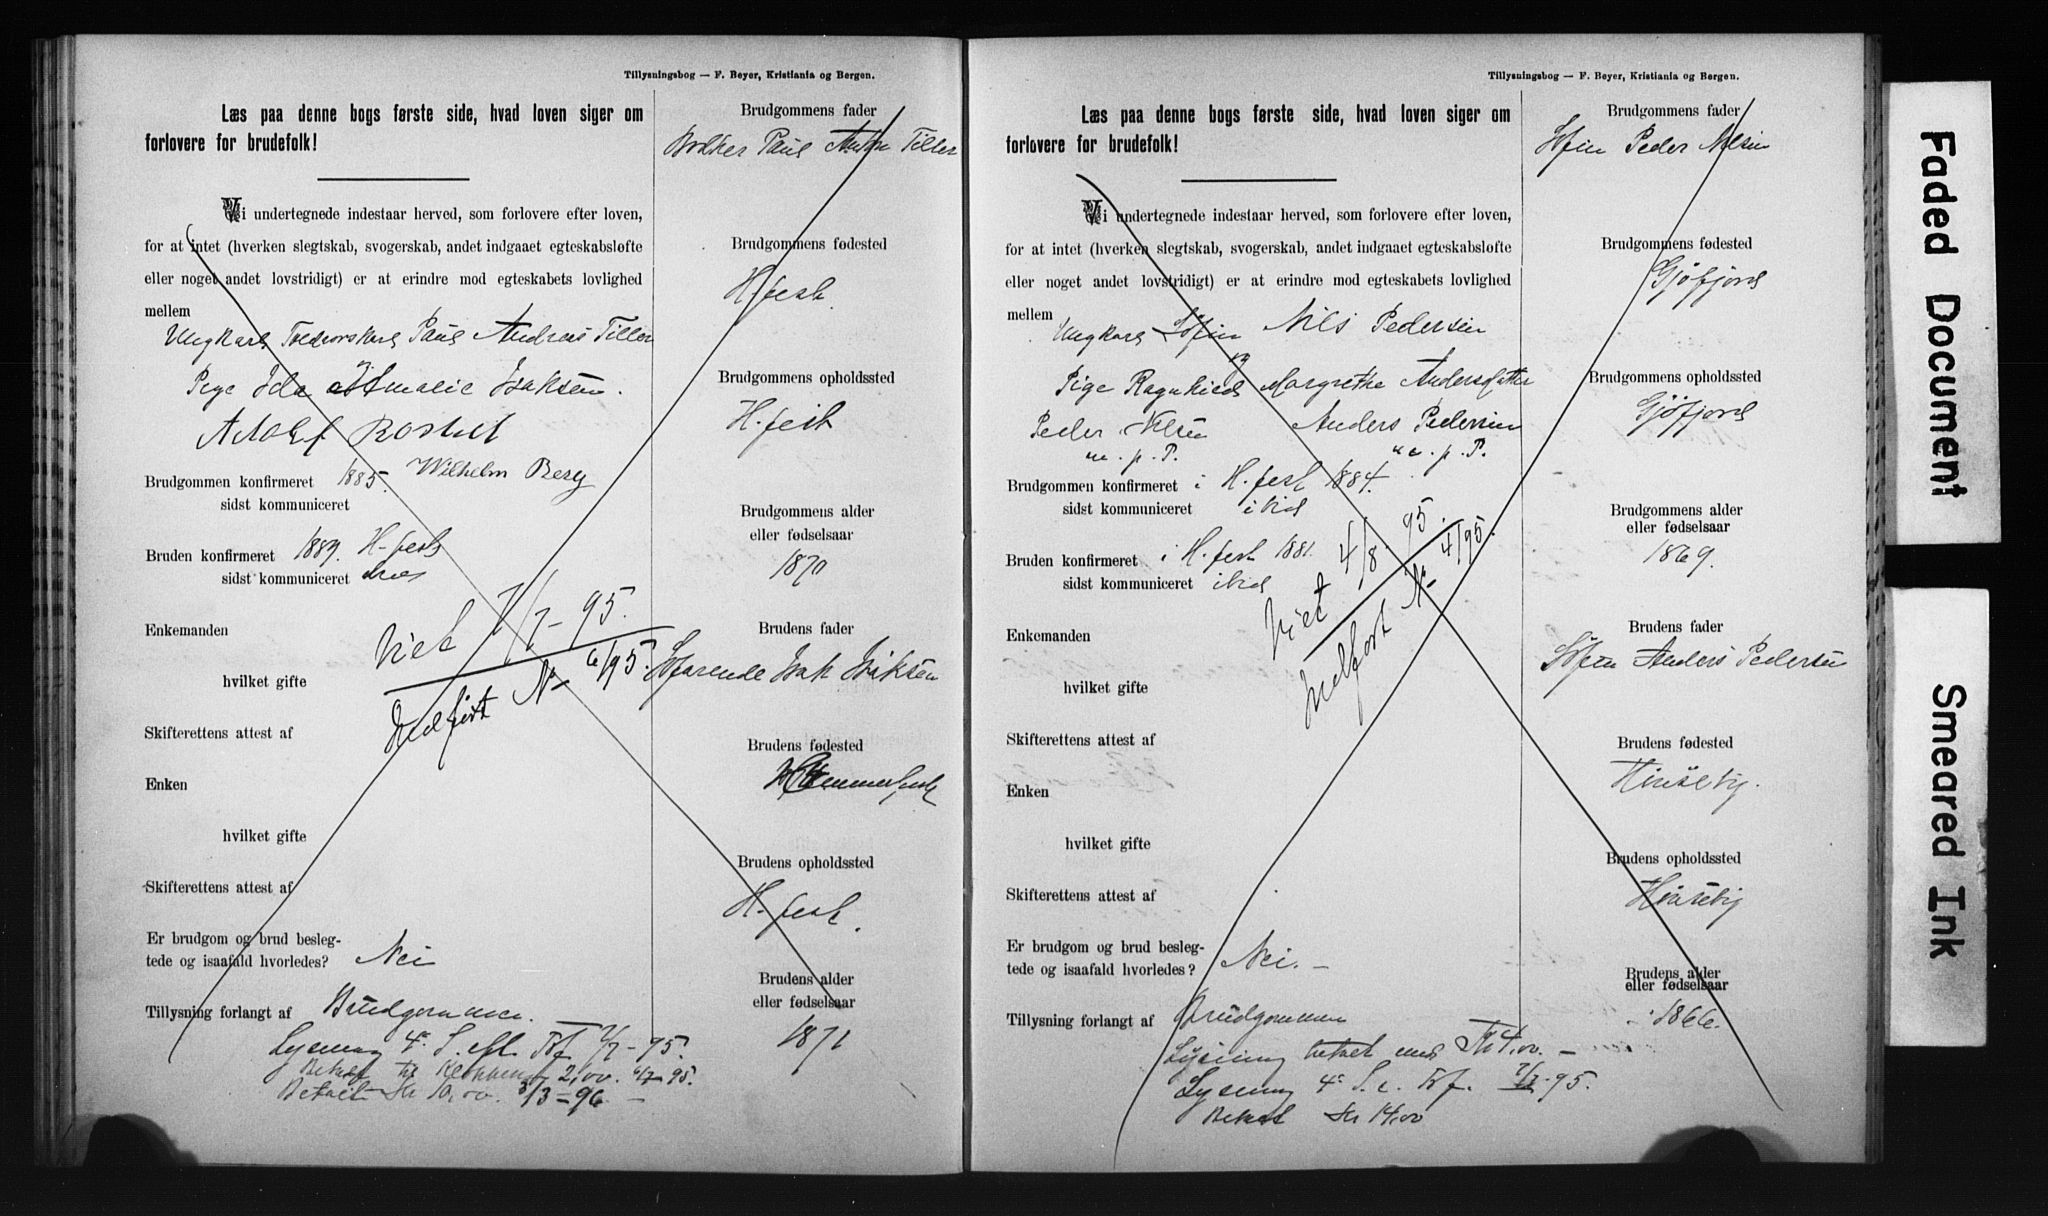 Tillysningsbog — F. Beyer, Kristiania og Bergen.
Læs paa denne bogs første side, hvad loven siger om
forlovere for brudefolk!
Vi undertegnede indestaar herved, som forlovere efter loven,
for at intet (hverken slegtskab, svogerskab, andet indgaaet egteskabsløfte
eller noget andet lovstridigt) er at erindre mod egteskabets lovlighed
mellem
Ungkarl Paul Andreas Tiller
Pige Ida Amalie Isaksen.
Adolf
Wilhelm Berg
Brudgommen konfirmeret 1885.
sidst kommuniceret
Bruden konfirmeret 1889. H-fest
sidst kommuniceret
Viet 7/7-95.
Indført No 6/95.
Enkemanden
hvilket gifte
Skifterettens attest af
Enken
hvilket gifte
Skifterettens attest af
Er brudgom og brud besleg-
tede og isaafald hvorledes? Nei
Tillysning forlangt af Brudgommen.
Lysning 4e S. eft. Trf. 7/7-95.
Betalt til Klokkeren 2,00. 6/7 95.
Betalt Kr 10,00. 3/3-96
Brudgommens fader
Paul Anton Tiller
Brudgommens fødested
H.fest.
Brudgommens opholdssted
H.fest
Brudgommens alder
eller fødselsaar
1870
Brudens fader
Søfarende Isak Isaksen
Brudens fødested
Hammerfest
Brudens opholdssted
H.fest.
Brudens alder
eller fødselsaar
1871
Tillysningsbog — F. Beyer, Kristiania og Bergen.
Læs paa denne bogs første side, hvad loven siger om
forlovere for brudefolk!
Vi undertegnede indestaar herved, som forlovere efter loven,
for at intet (hverken slegtskab, svogerskab, andet indgaaet egteskabsløfte
eller noget andet lovstridigt) er at erindre mod egteskabets lovlighed
mellem
Ungkarl Søfin Nils Pedersen
Pige Ragnhild Margrethe Andersdatter
Peder Nilsen Anders Pedersen
m. p. P. m. p. P.
Brudgommen konfirmeret i H.fest 1884.
sidst kommuniceret ibid
Bruden konfirmeret i H.fest 1881.
sidst kommuniceret ibid
Viet 4/8 95.
Indført No 4/95.
Enkemanden
hvilket gifte
Skifterettens attest af
Enken
hvilket gifte
Skifterettens attest af
Er brudgom og brud besleg-
tede og isaafald hvorledes? Nei. —
Tillysning forlangt af Brudgommen
Lysning betalt med Kr 4,00. —
Lysning 4e S. e. Trf. 7/7-95.
Betalt Kr 14,00
Brudgommens fader
Søfin Peder Nilsen
Brudgommens fødested
Gjøfjord
Brudgommens opholdssted
Gjøfjord
Brudgommens alder
eller fødselsaar
1869.
Brudens fader
Søfin Anders Pedersen
Brudens fødested
Brudens opholdssted
Brudens alder
eller fødselsaar
1866.
Faded Document
Smeared Ink